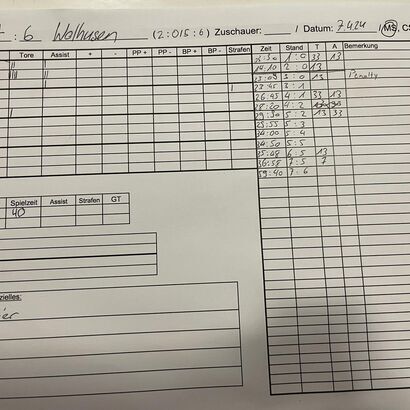 : 6 Wolhusen (2:015:6) Zuschauer: / Datum: 7.4.24 / MS, CS
Tore Assist + - PP + PP - BP + BP - Strafen Zeit Stand T A Bemerkung
1:0 33 13
14:10 2:0 13
3:0 13 Penalty
23:45 3:1
26:45 4:1 33 13
28:20 4:2
29:30 5:2 13 33
25:55 5:3
34:00 5:4
34:50 5:5
6:5 13
36:58 7:5 7
59:40 7:6
Spielzeit Assist Strafen GT
40
zielles: